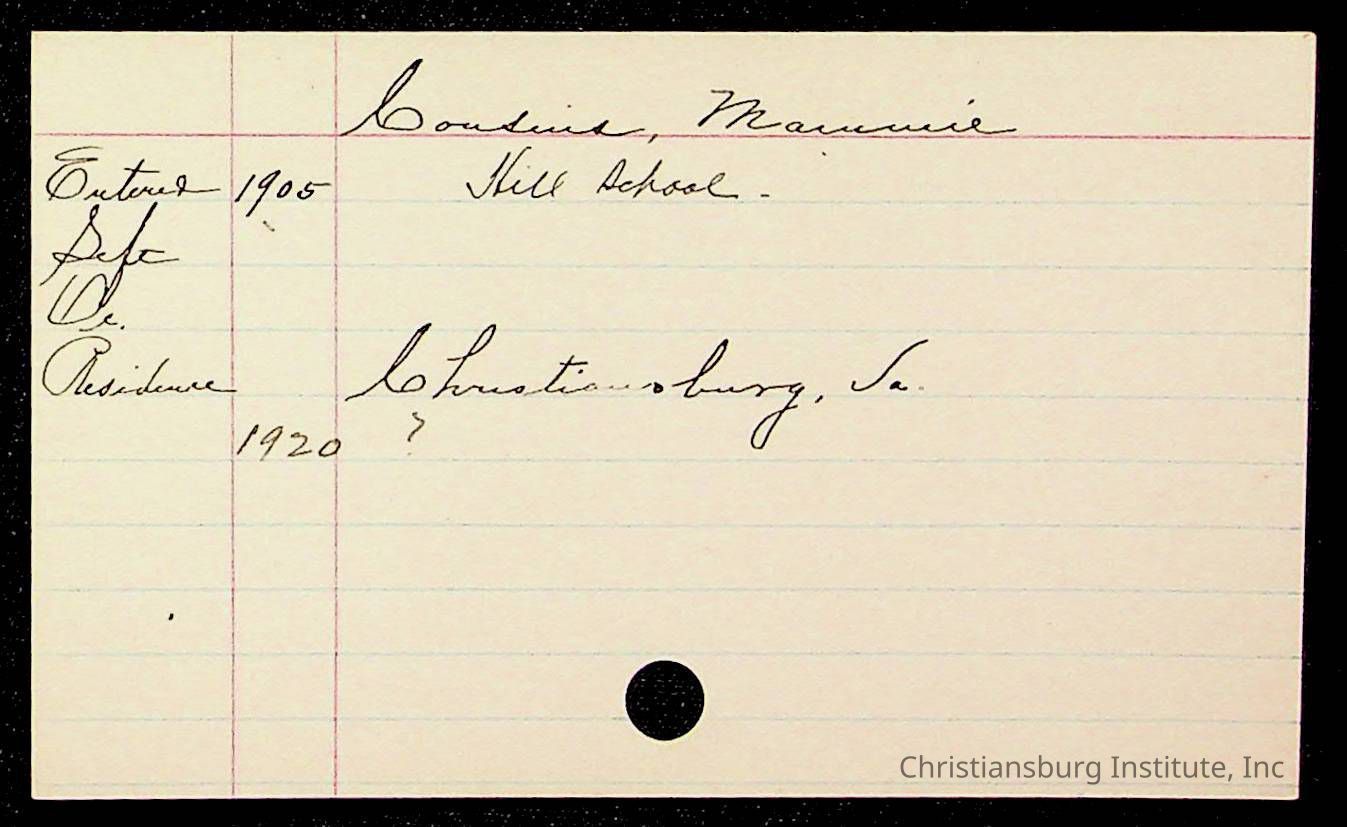 Cousins, Mammie
Entered 1905 Hill School.
Left
Oc.
Residence Christiansburg, Va.
1920 ?
Christiansburg Institute, Inc